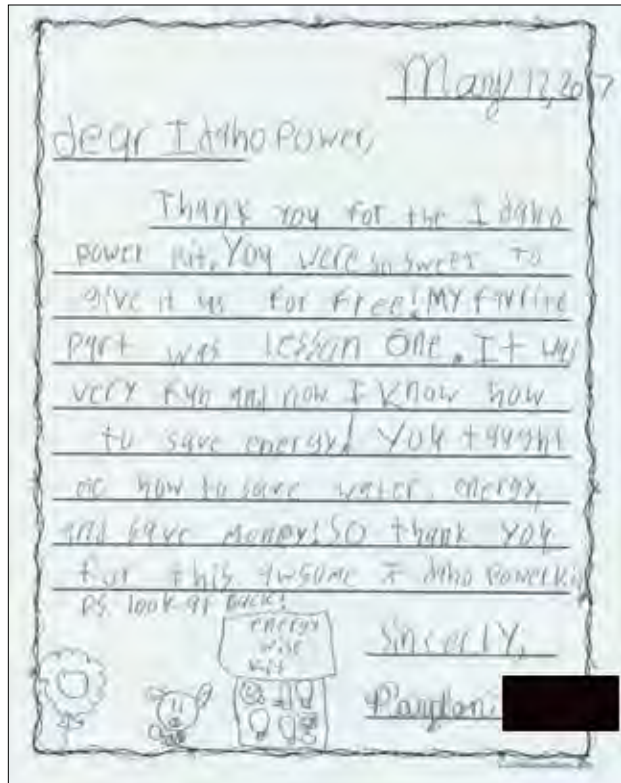 May 17, 2017
dear Idaho Power,
Thank you for the Idaho
power kit. You were so sweet to
give it us for free! MY favrite
part was Lesson One. It was
very fun and now I know how
to save energy! You taught
me how to save water, energy,
and save money! SO thank you
for this awsome Idaho Power Ki
P.S. look at back!
energy
wise
kit
Sincerly,
Payton